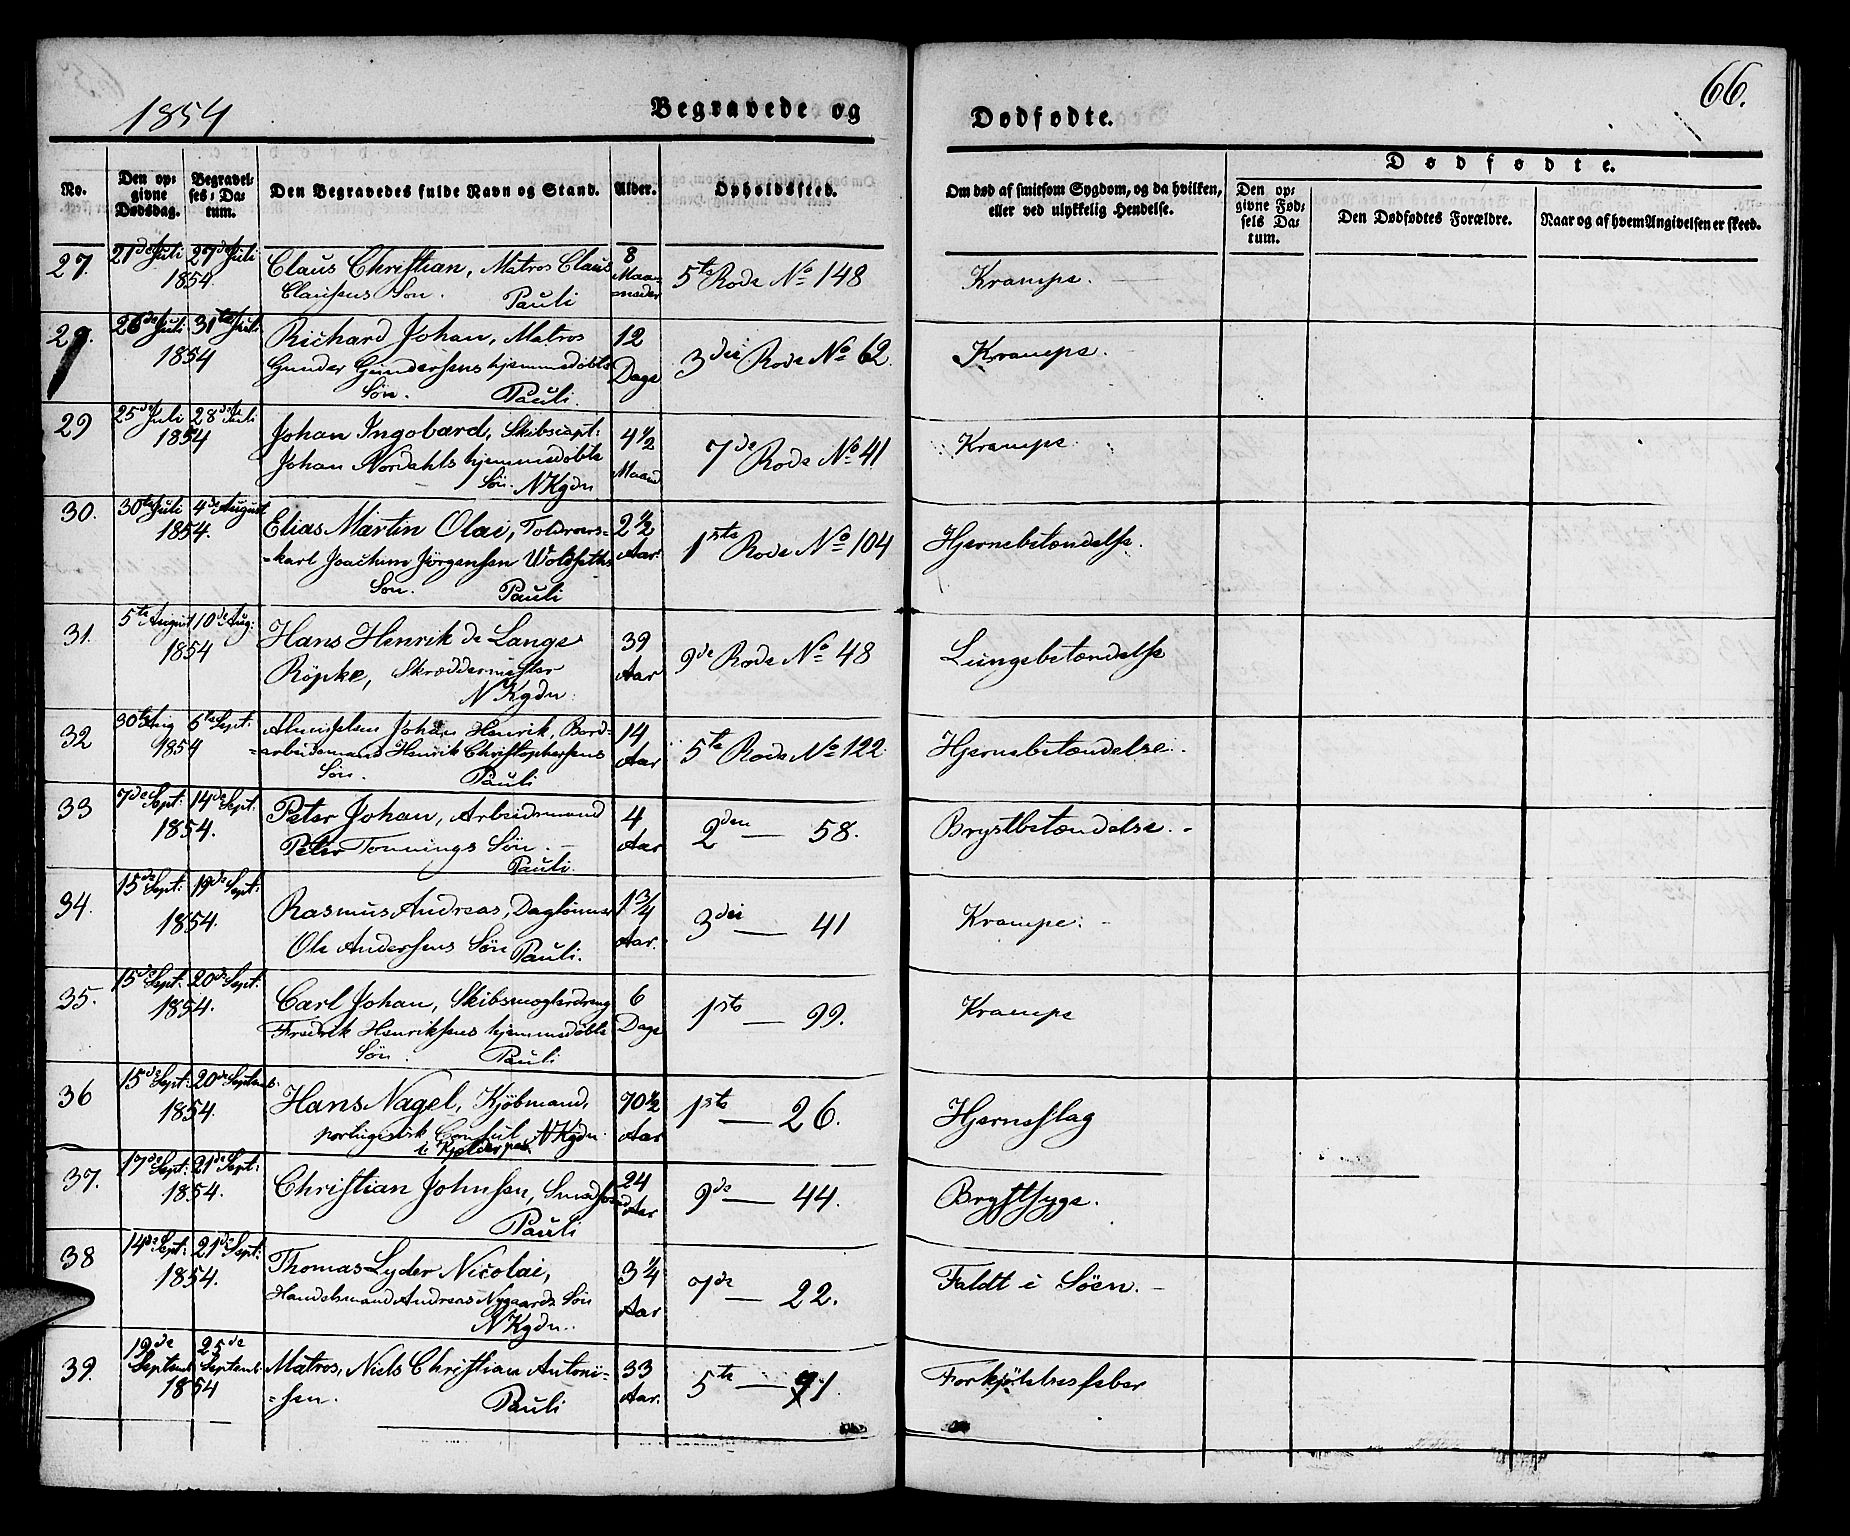 1854
Begravede og
Dødfødte.
66.
No.
Den op-
givne
Dødsdag.
Begravel-
ses-Da-
tum.
Den Begravedes fulde Navn og Stand.
Alder.
Opholdssted.
Om død af smitsom Sygdom, og da hvilken,
eller ved ulykkelig Hendelse.
Dødfødte.
Den op-
givne Fød-
sels Da-
tum.
Den Dødfødtes Forældre.
Naar og af hvem Angivelsen er skeed.
27. 21de Juli 27de Juli 1854. Claus Christian, Matros Claus 8 Maaneder 5te Rode No 148 Krampe.
Clausens Søn. Pauli
26de Juli 31te Juli 1854 Richard Johan, Matros 12 Dage 3die Rode No 62. Krampe.
Gunder Gundersens hjemmedøbte
Søn. Pauli.
29 25de Juli 28de Juli 1854 Johan Ingobard, Skibscapt: 4 1/2 Maaned 7de Rode No 41 Krampe.
Johan Nordahls hjemmedøbte
Søn. NKgdn
30. 30te Juli 4de August 1854. Elias Martin Olai, Toldroers- 2 1/2 Aar. 1ste Rode No 104 Hjernebetændelse.
-karl Joachim Jørgensen Woldseths
Søn. Pauli
31. 5te August 10de Aug: 1854 Hans Henrik de Lange 39 Aar 9de Rode No 48 Lungebetændelse
Röpke, Skræddermester
NKgdn.
32 30te Aug 6te Sept: 1854 Johan Henrik, Bord- 14 Aar 5te Rode No 122. Hjernebetændelse.
-arbeidsmand Henrik Christophersens
Søn. Pauli
33 7de Sept: 14de Sept: 1854. Peter Johan, Arbeidsmand 4 Aar 2den — 58. Brystbetændelse.
Peter Tonnings Søn.
Pauli.
34. 15de Sept: 19de Sept: 1854. Rasmus Andreas, Daglønner 1 3/4 Aar. 3die — 41 Krampe.
Ole Andersens Søn Pauli.
35. 15de Sept: 20de Sept. 1854. Carl Johan, Skibsmæglerdreng 6 Dage 1ste — 99. Krampe
Fredrik Henriksens hjemmedøbte
Søn. Pauli
36 15de Sept: 20de Septemb. 1854. Hans Nagel, Kjøbmand, 70 1/2 Aar 1ste — 26. Hjerneslag
portugisisk Consul NKgdn.
37. 17de Sept: 21de Sept: 1854. Christian Johnsen, Smedsvend 24 Aar 9de — 44. Brystsyge.
Pauli
38 14de Sept: 21de Sept: 1854. Thomas Lyder Nicolai, 3 1/4 Aar 7de — 22. Faldt i Søen.
Handelsmand Andreas Nygaards Søn
NKgdn.
39. 19de Septemb 25de Septemb 1854 Matros, Niels Christian Antoni- 33 Aar. 5te — 91. Forkjølelsesfeber
-sen. Pauli